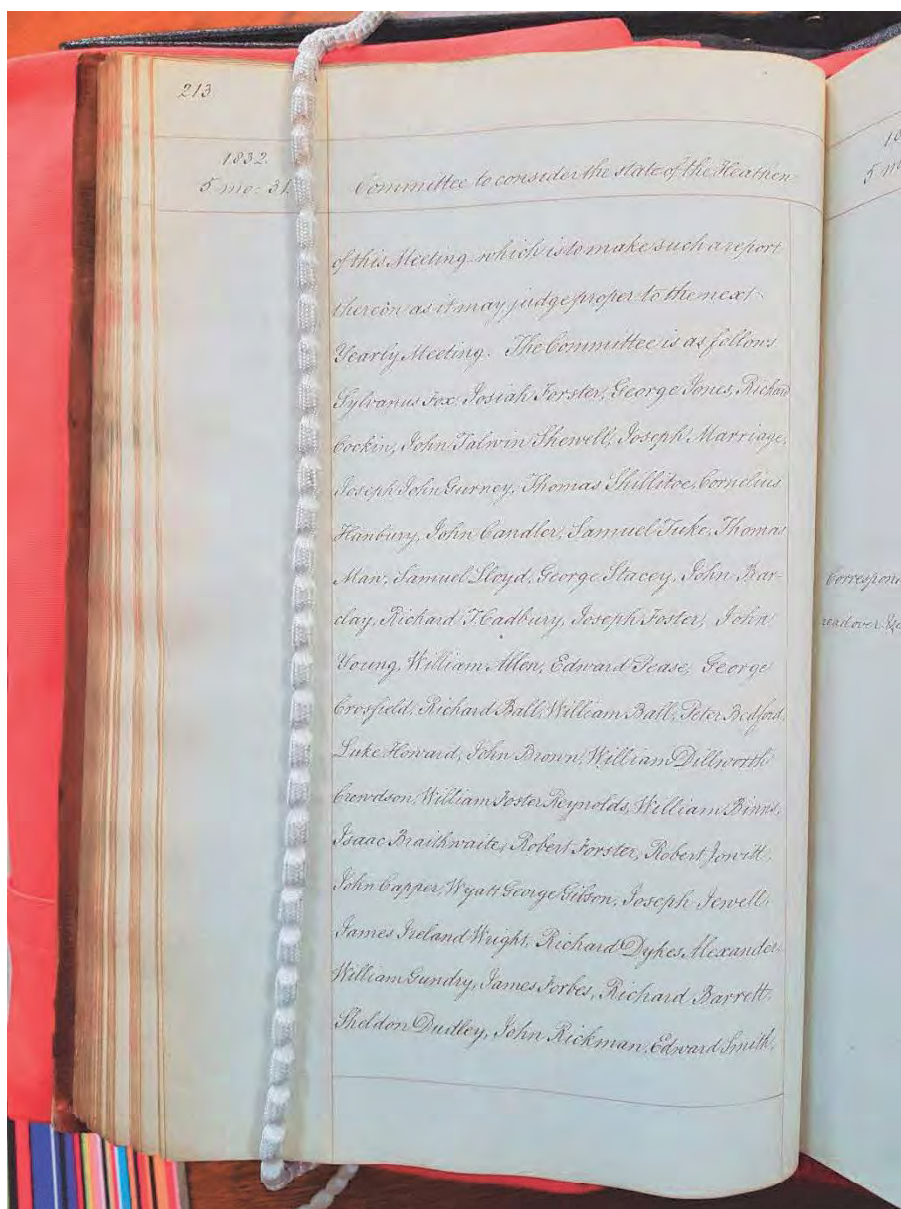 213
1832.
5 mo: 31. Committee to consider the state of the Heathen
of this Meeting which is to make such a report
thereon as it may judge proper to the next
Yearly Meeting. The Committee is as follows
Sylvanus Fox, Josiah Forster, George Jones, Richard
Cockin, John Talwin Shewell, Joseph Marriage,
Joseph John Gurney, Thomas Shillitoe, Cornelius
Hanbury, John Candler, Samuel Tuke, Thomas
Man, Samuel Lloyd, George Stacey, John Bar-
clay, Richard T. Cadbury, Joseph Foster, John
Young, William Allen, Edward Pease, George
Crosfield, Richard Ball, William Ball, Peter Bedford,
Luke Howard, John Brown, William Dillworth
Crewdson, William Foster Reynolds, William Binns,
Isaac Braithwaite, Robert Forster, Robert Jowitt,
John Capper, Wyatt George Gibson, Joseph Jewell,
James Ireland Wright, Richard Dykes Alexander,
William Gundry, James Forbes, Richard Barrett,
Sheldon Dudley, John Rickman, Edward Smith,
5 m
Correspond
read over &c